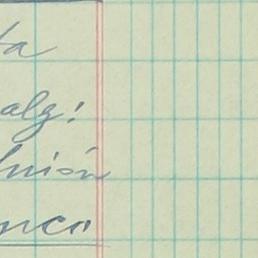 ta
alg:
unión
nco